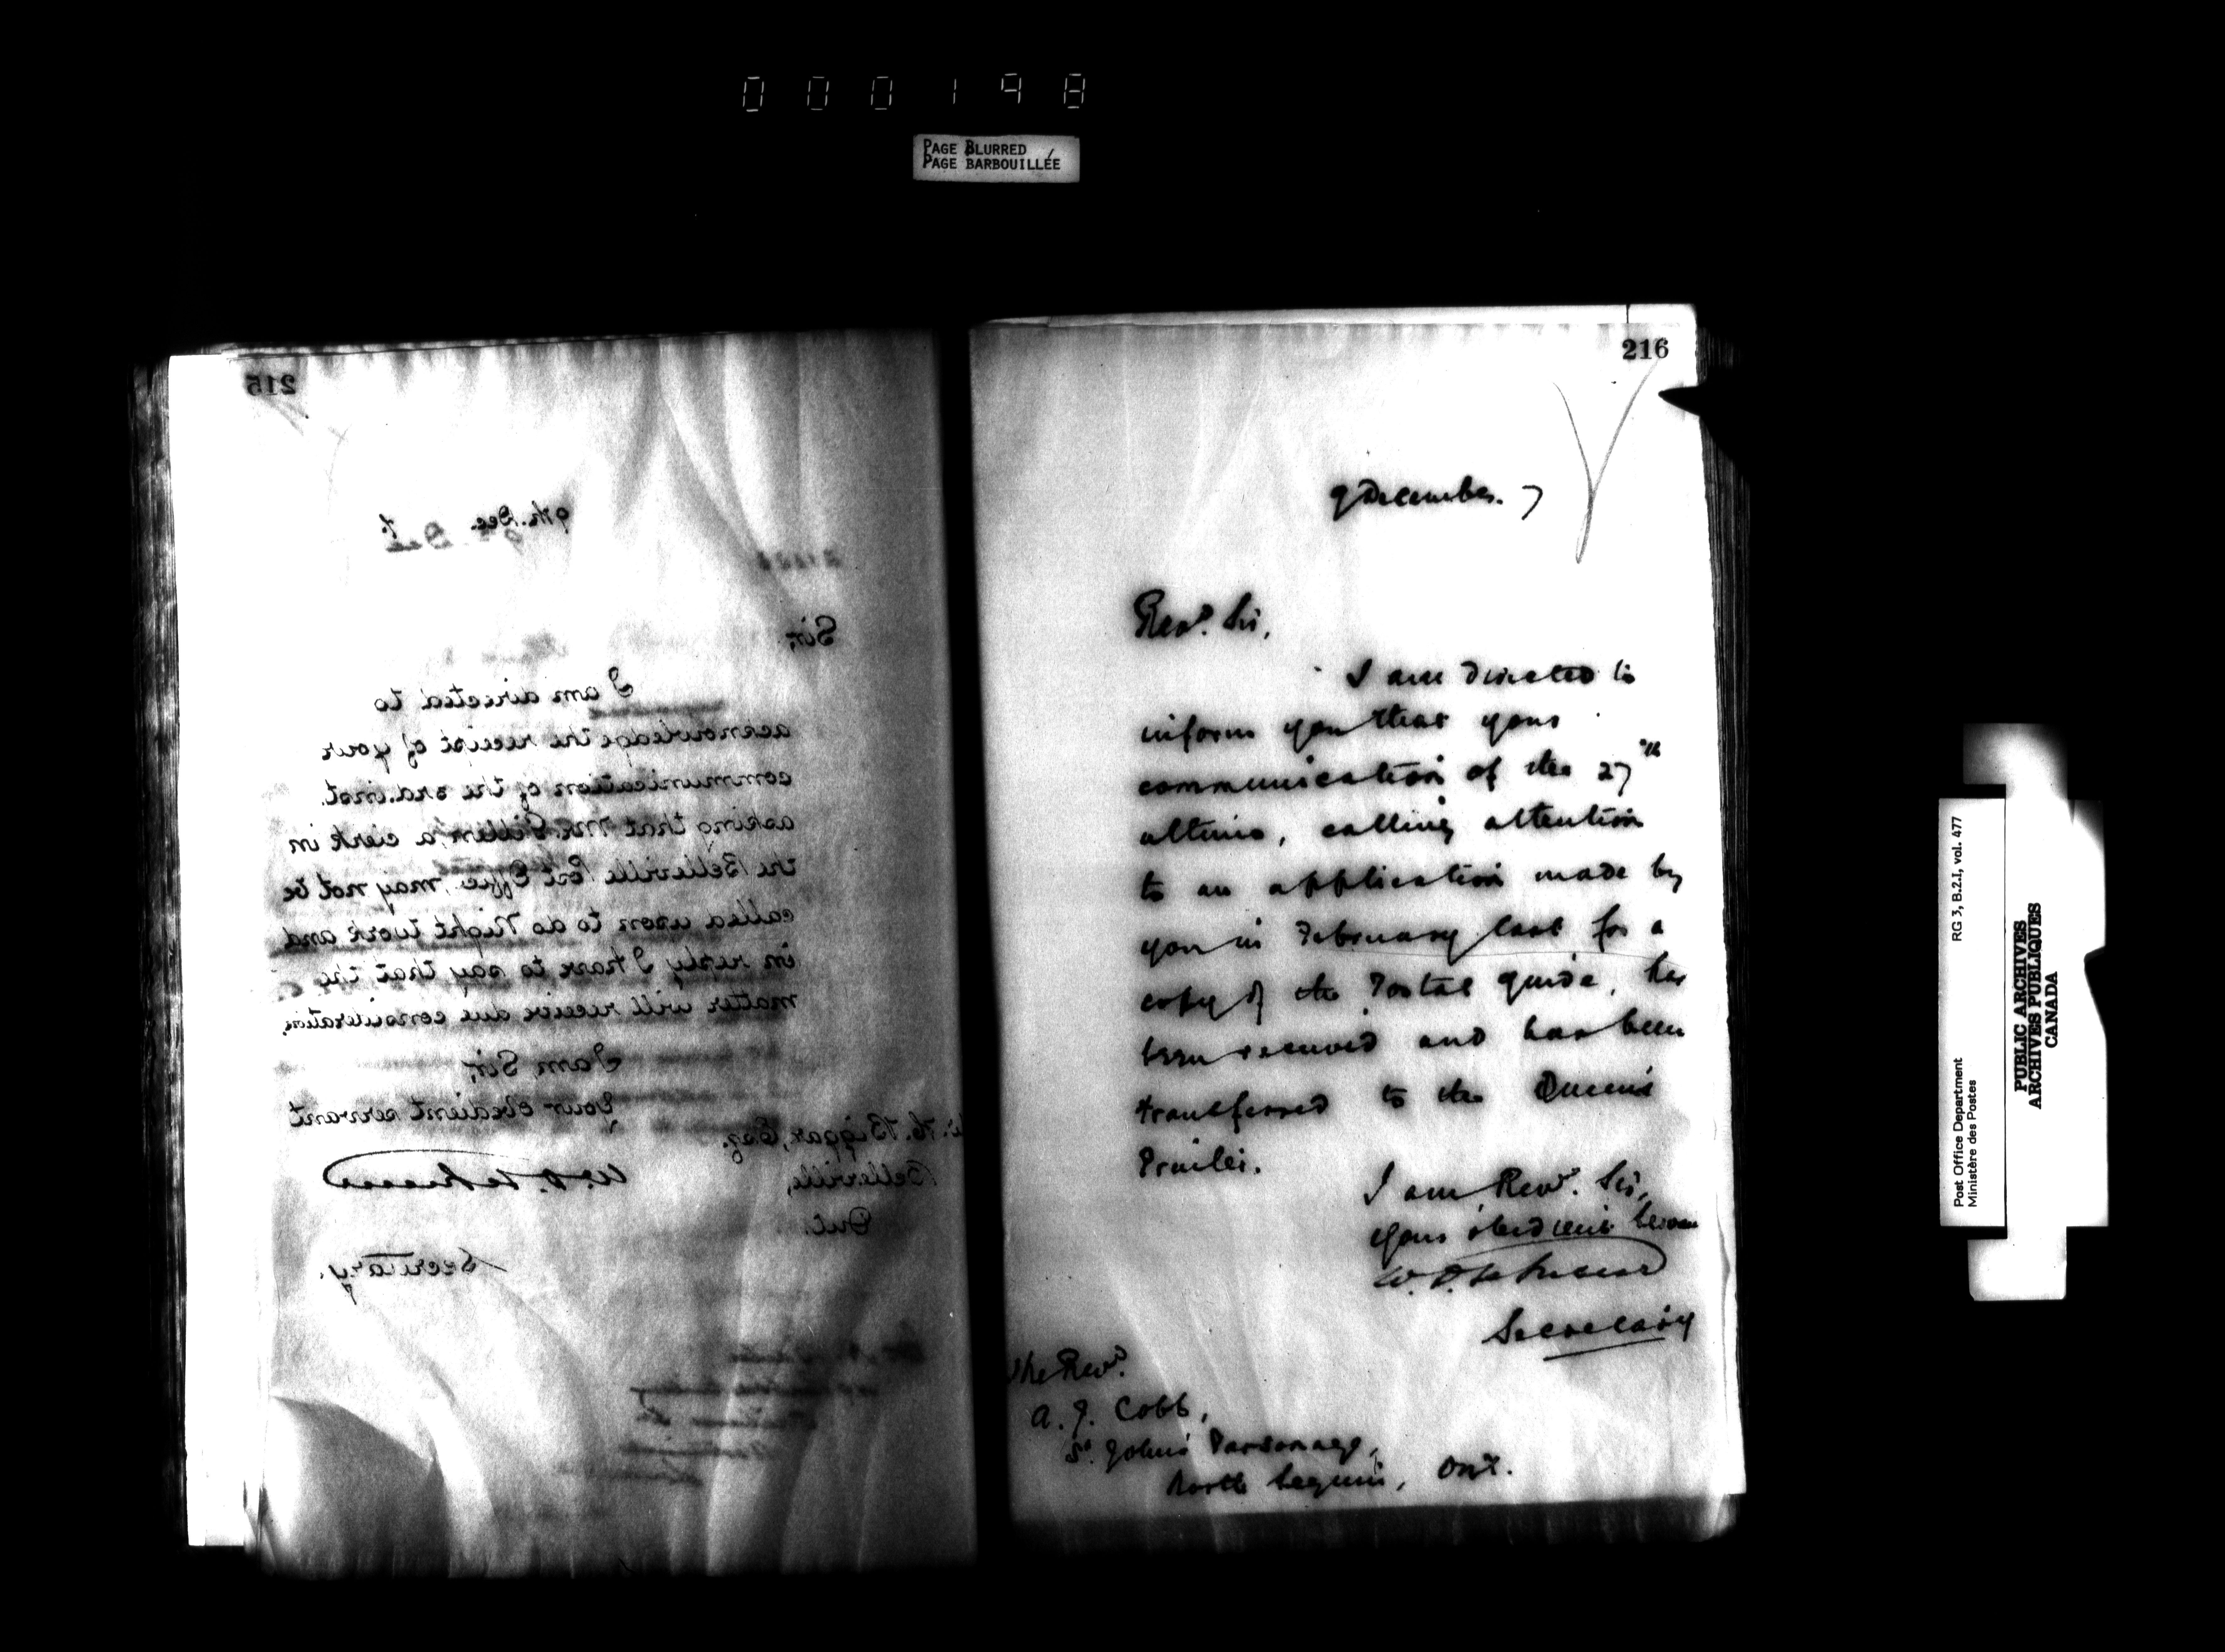 000198
PAGE BLURRED
PAGE BARBOUILLÉE
215
9th. Dec. 7.
Sir,
I am directed to
acknowledge the receipt of your
communication of the 3rd. inst.
asking that Mr. Gillen, a clerk in
the Belleville Post Office, may not be
called upon to do Night work and
in reply I have to say that the
matter will receive due consideration.
I am, Sir,
Your obedient servant
Secretary.
W. H. Biggar, Esq.
Belleville,
Ont.
216
9 December. 7
Revd. Sir,
I am directed to
inform you that your
communication of the 27th
ultimo, calling attention
to an application made by
you in February last for a
copy of the Postal guide, has
been received and has been
transferred to the Queen's
Printer.
I am, Revd. Sir,
Your obedient servant
Secretary
The Revd.
A. J. Cobb,
St. John's Parsonage,
North Ont.
Post Office Department RG 3, B.2.I, vol. 477
Ministère des Postes
PUBLIC ARCHIVES
ARCHIVES PUBLIQUES
CANADA